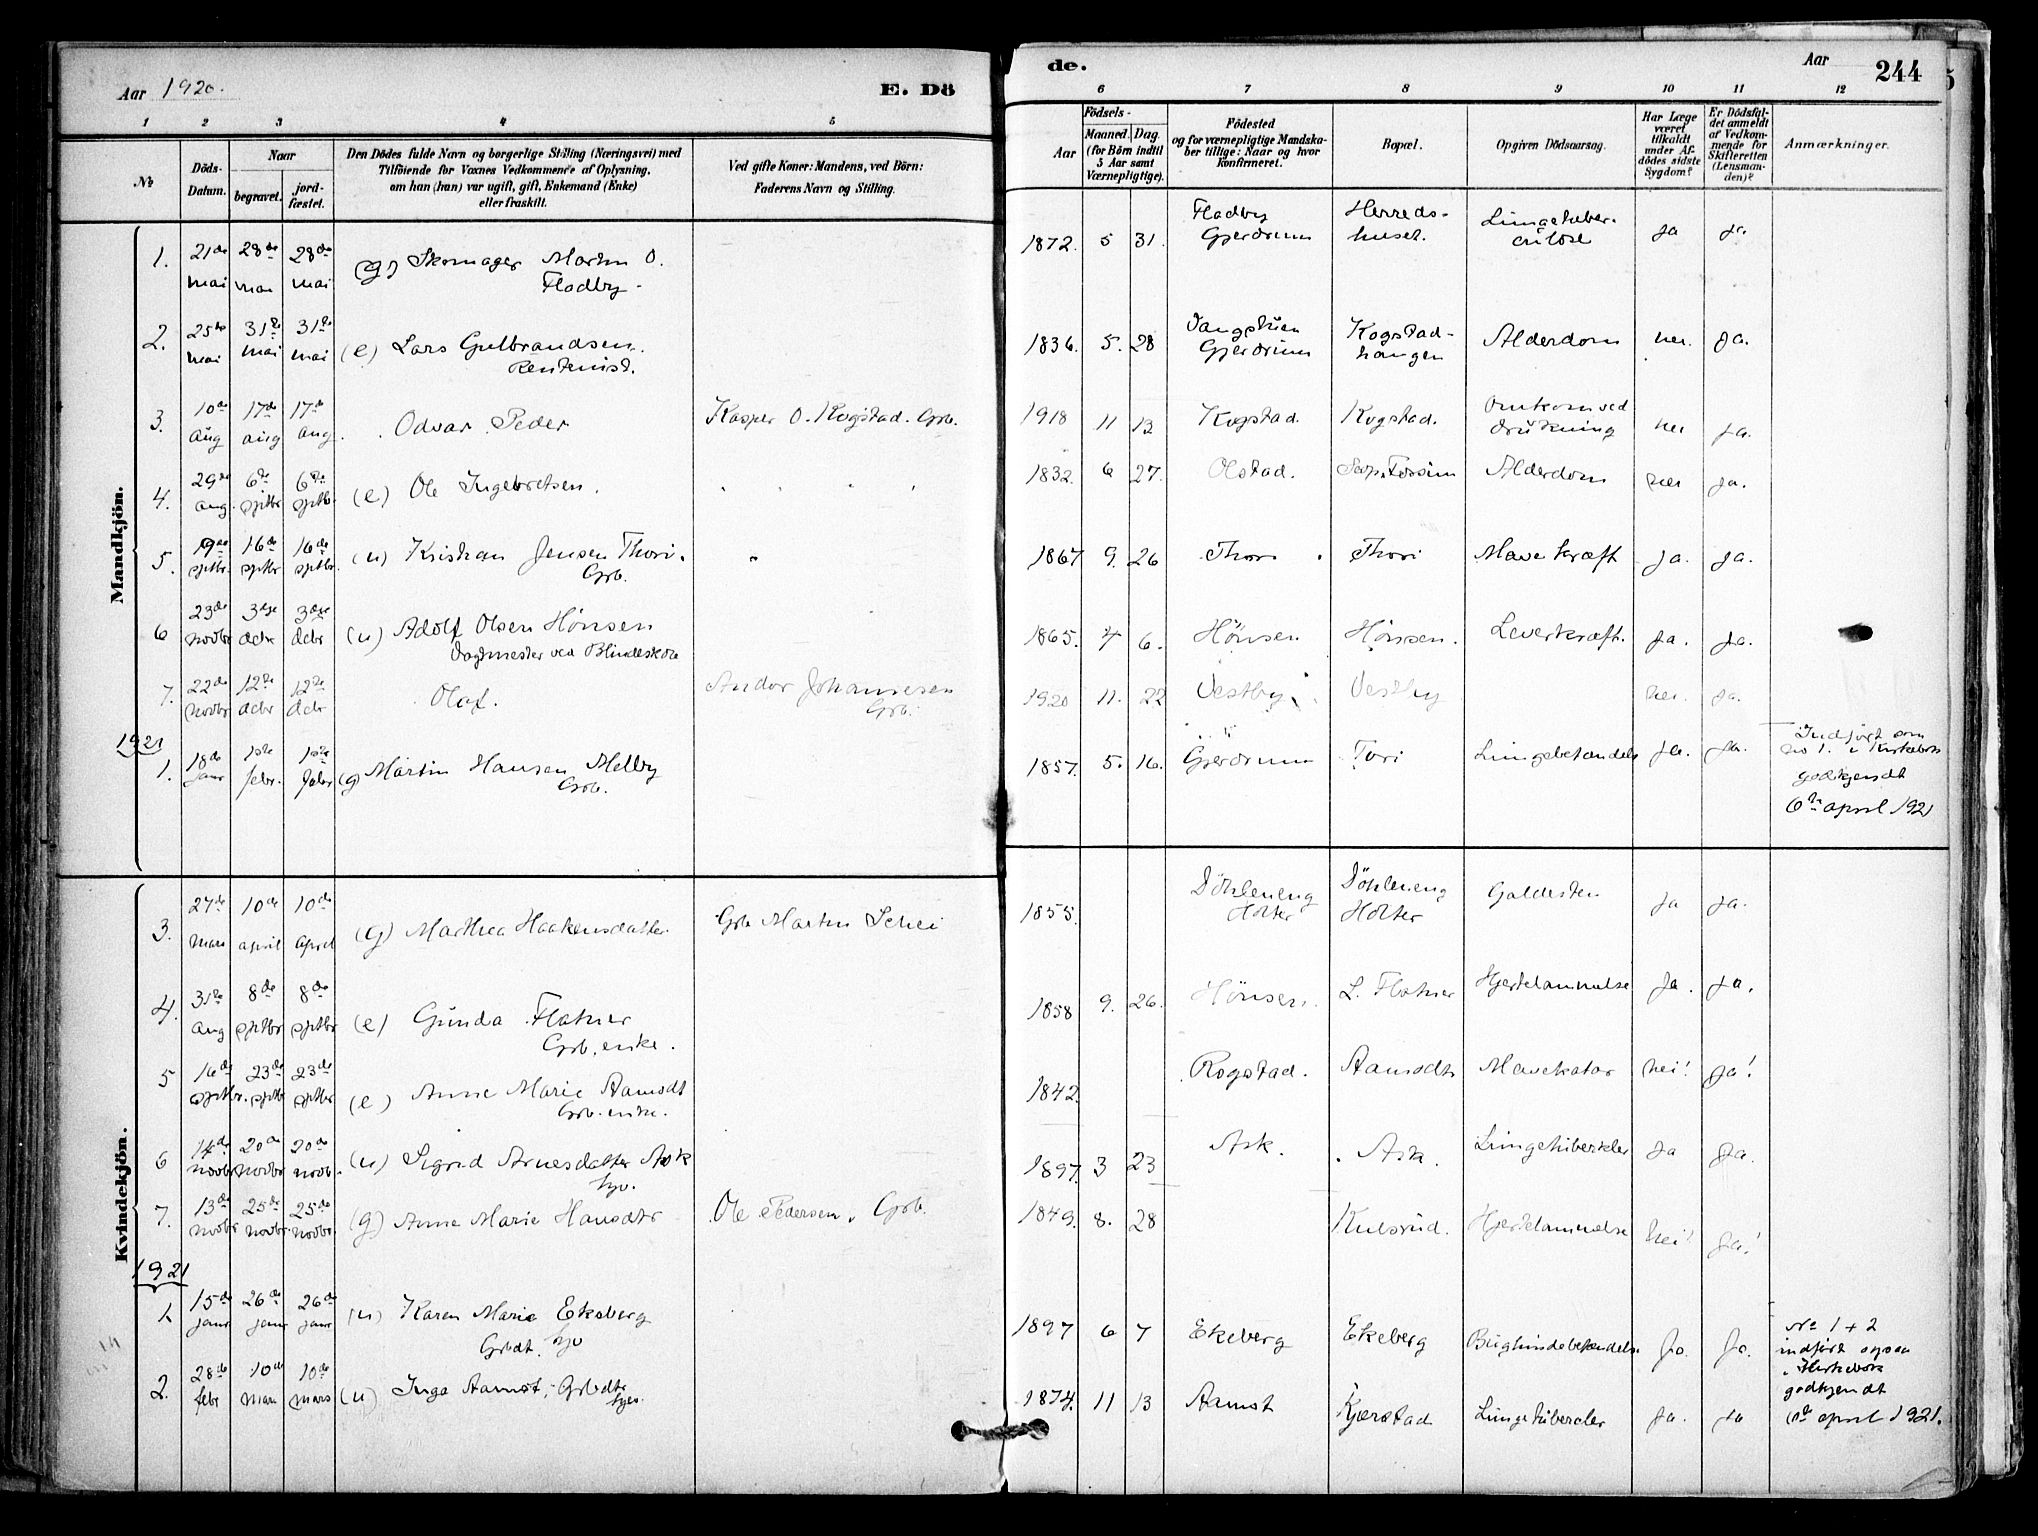 Aar 1920.
E. Dö
de.
Aar
244
1 2 3 4 5
6 7 8 9 10 11 12
No
Döds-Datum.
Naar
begravet.
jord-fæstet.
Den Dödes fulde Navn og borgerlige Stilling (Næringsvei) med
Tilföiende for Voxnes Vedkommende af Oplysning,
om han (hun) var ugift, gift, Enkemand (Enke)
eller fraskilt.
Ved gifte Koner: Mandens, ved Börn:
Faderens Navn og Stilling.
Aar
Födsels-
Maaned. Dag.
(for Börn indtil
5 Aar samt
Værnepligtige).
Födested
og for værnepligtige Mandska-
ber tillige: Naar og hvor
konfirmeret.
Bopæl.
Opgiven Dödsaarsag.
Har Læge
været
tilkaldt
under Af-
dödes sidste
Sygdom?
Er Dödsfal-
det anmeldt
af Vedkom-
mende for
Skifteretten
(Lensman-
den)?
Anmærkninger.
Mandkjön.
1. 21de mai 28de mai 28de mai (g) Skomager Martin O. Fladby 1872. 5 31. Fladby Gjerdrum Herreds-huset. Lungetuber-culose ja ja
2. 25de mai 31te mai 31te mai (e) Lars Gulbrandsen. Rentenist. 1836. 5. 28 Vangstuen Gjerdrum Kogstad-haugen Alderdom nei. ja.
3. 10de aug 17de aug 17de aug. Odvar Peder Kasper O. Kogstad. Grb. 1918 11 13 Kogstad. Kogstad. Omkom ved drukning nei ja.
4. 29de aug. 6te septbr 6te septbr. (e) Ole Ingebretsen. 1832. 6 27. Olstad. Alderdom nei ja.
5. 19de septbr. 16de septbr 16de septbr. (u) Kristian Jensen Thori. Grb. 1867 9. 26 Thori Thori Mavekræft ja. ja.
6 23de novbr 3dje decbr 3dje decbr (u) Adolf Olsen Hønsen Vagtmester ved Blindeskole 1865. 4 6. Hønsen Hønsen. Leverkræft. ja. ja.
7. 22de novbr 12te decbr 12te decbr Olaf. Andor Johansesen Grb. 1920 11. 22 Vestby Vestby nei. ja.
1921
1. 18de janr 1ste febr. 1ste febr (g) Martin Hansen Melby Grb. 1857. 5. 16. Gjerdrum Tori Lungebetændels ja. ja. Indført som no 1. i Kirkebok godkjendt 6te april 1921
Kvindekjön.
3. 27de mars 10de april 10de april (g) Marthea Haakensdatter Grb Martin Schei 1855. Döhleneng Holter Döhleneng Holter Galdesten ja ja.
4. 31te aug 8de septbr 8de septbr (e) Gunda Flatner Grb. enke. 1858 9. 26. Hönsen. L. Flatner Hjertelammelse ja. ja.
5 16de septbr. 23de septbr 23de septbr (e) Anne Marie Aamodt Grb. enke. 1842. Rogstad. Aamodt Mavekatar nei! ja!
6 14de novbr 20de novbr 20de novb. (u) Sigrid Arnesdatter Ask syv. 1897. 3 23 Ask. Ask. Lungetuberkler ja ja.
7. 13de novbr 25de novbr. 25de novbr. (g) Anne Marie Hansdtr Ole Pedersen. Grb. 1849. 8. 28 Kulsrud. Hjertelammelse nei! ja!
1921
1. 15de janr 26de janr 26de janr (u) Karen Marie Ekeberg Grbdt. syv 1897 6 7 Ekeberg Ekeberg Bughindebetændels. ja. ja. No 1 + 2 indført ogsaa i Kirkebok godkjendt 6te april 1921.
2. 28de febr 10de mars 10de mars (u) Inga Aamot, Grbdtr syv. 1874. 11 13 Aamot Kjærstad Lungetuberkler ja. ja